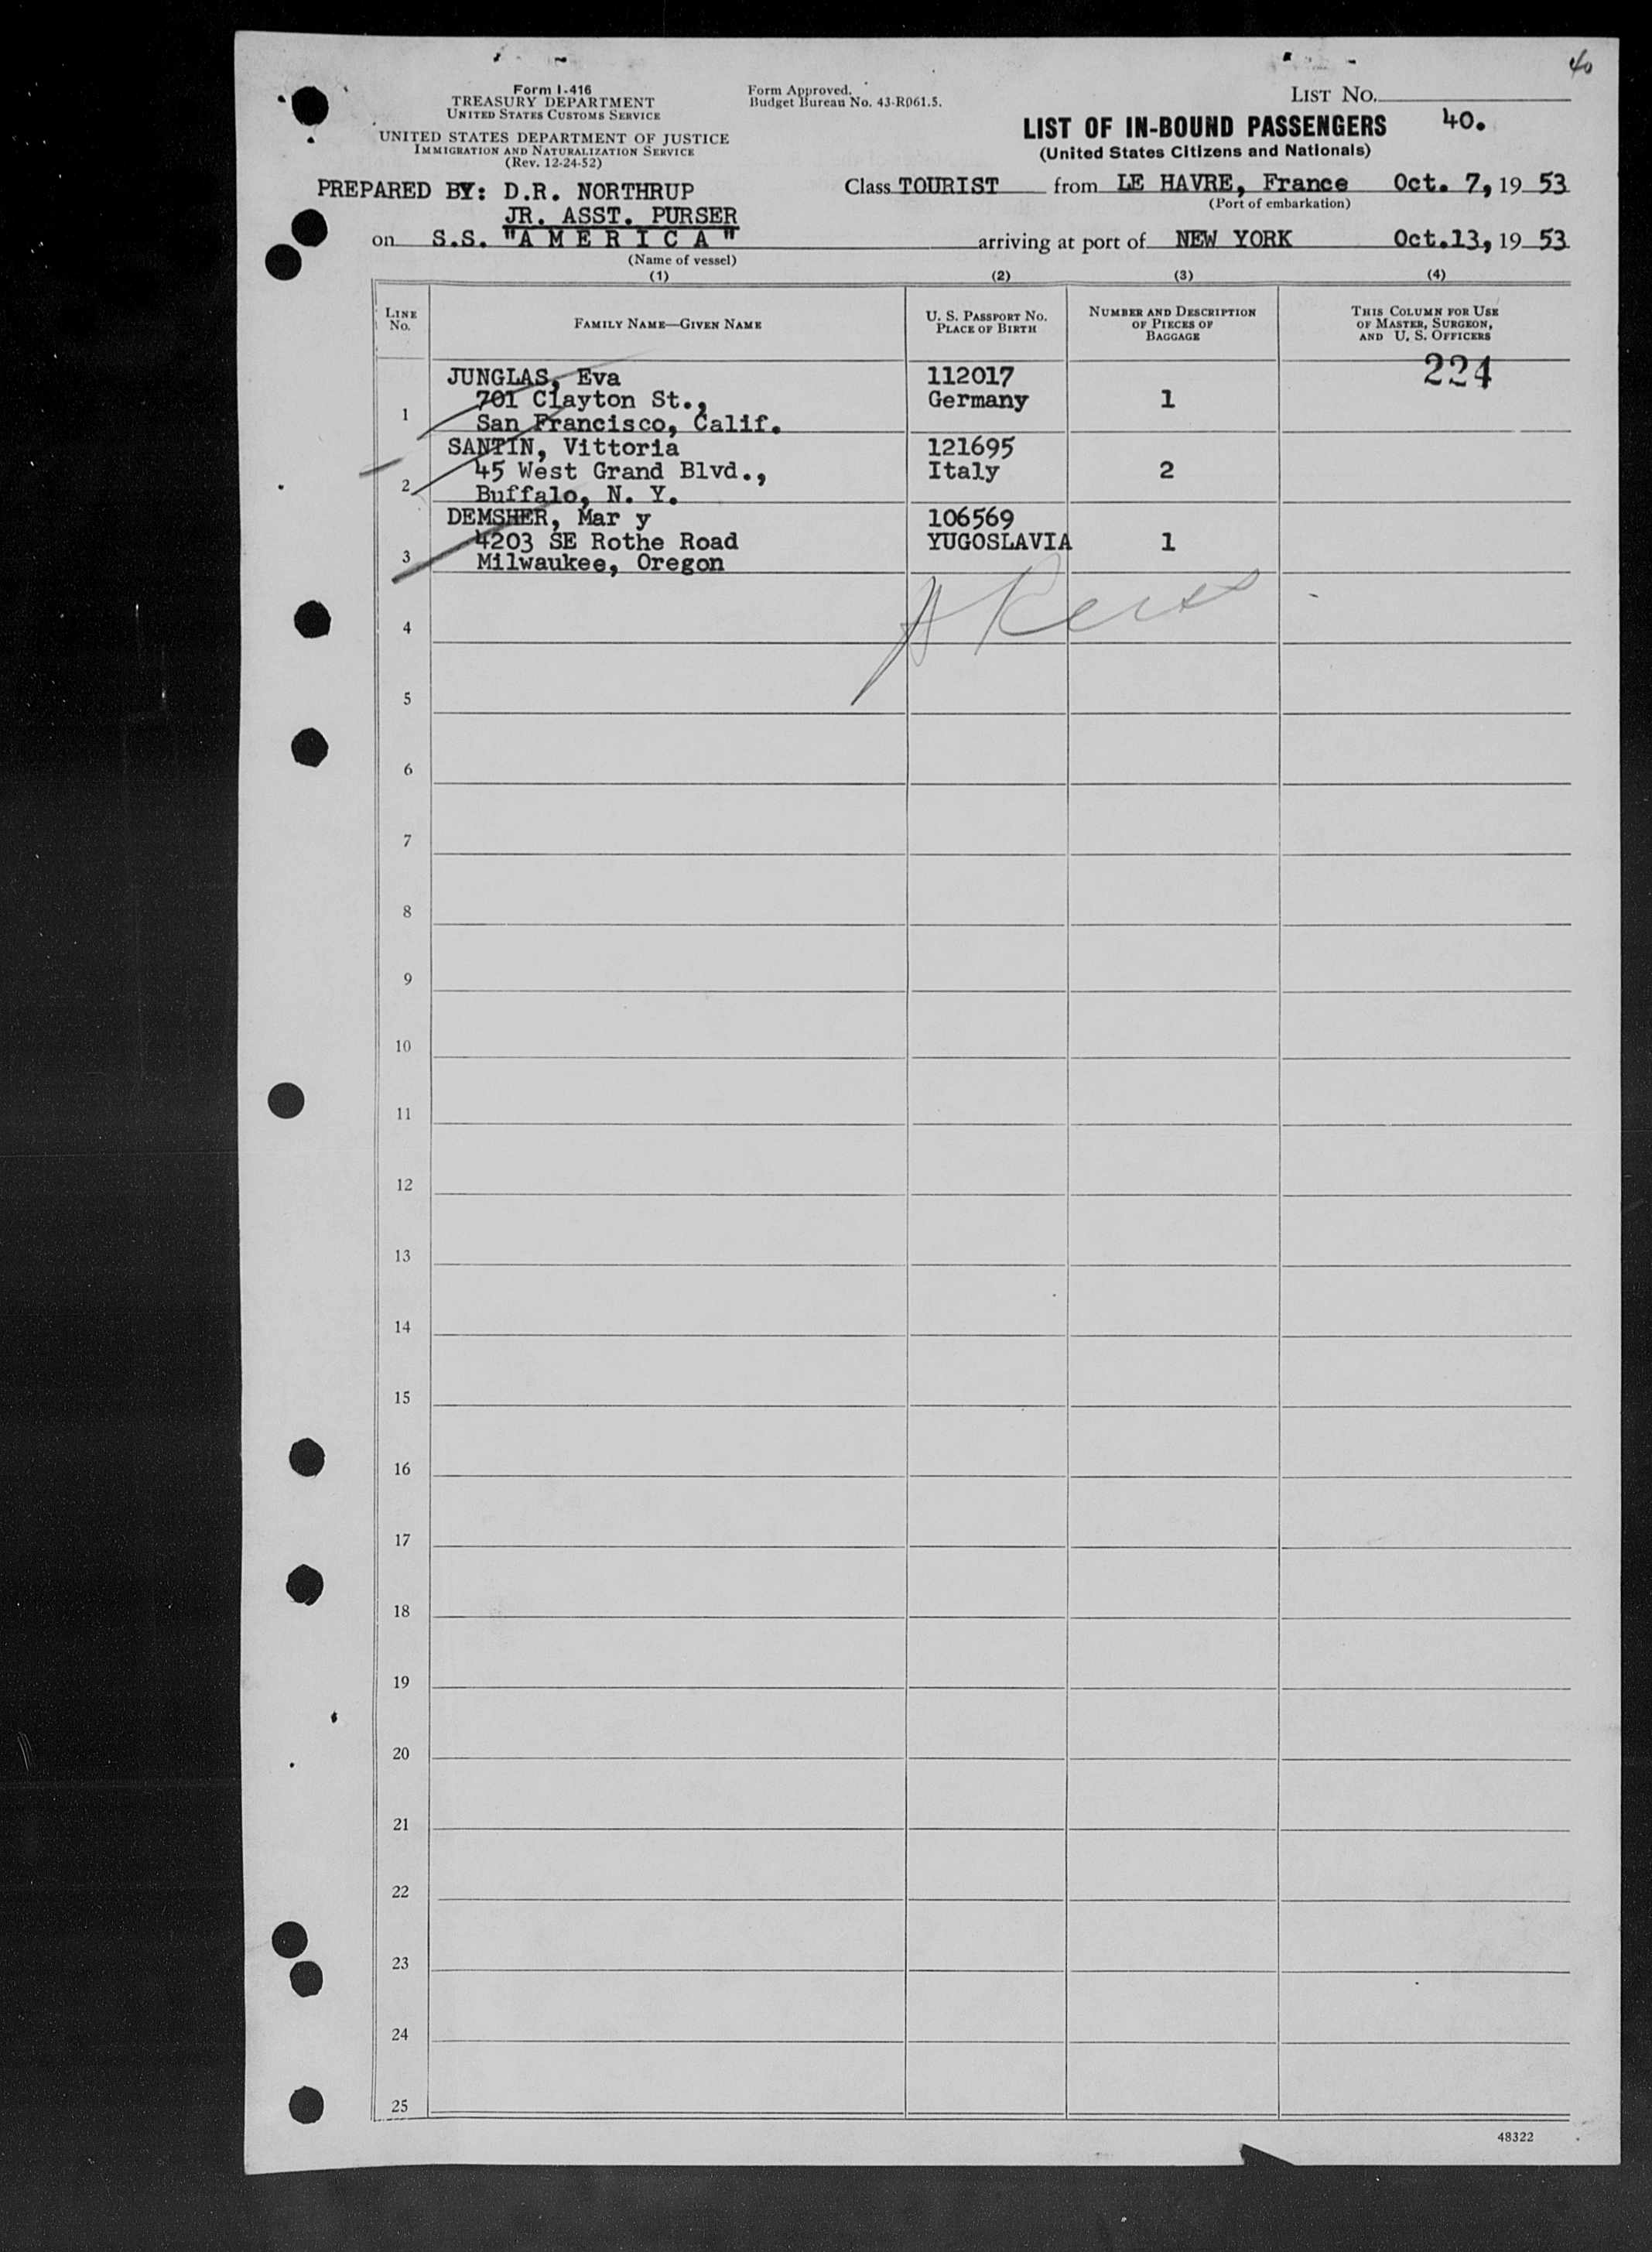 40
Form I-416
TREASURY DEPARTMENT
UNITED STATES CUSTOMS SERVICE
UNITED STATES DEPARTMENT OF JUSTICE
IMMIGRATION AND NATURALIZATION SERVICE
(Rev. 12-24-52)
Form Approved.
Budget Bureau No. 43-R061.5.
LIST NO.
LIST OF IN-BOUND PASSENGERS 40.
(United States Citizens and Nationals)
PREPARED BY: D.R. NORTHRUP
JR. ASST. PURSER
Class TOURIST from LE HAVRE, France Oct. 7, 19 53
(Port of embarkation)
on S.S. "A M E R I C A" arriving at port of NEW YORK Oct.13, 19 53
(Name of vessel)
(1) (2) (3) (4)
LINE NO.
FAMILY NAME—GIVEN NAME
U. S. PASSPORT NO.
PLACE OF BIRTH
NUMBER AND DESCRIPTION
OF PIECES OF
BAGGAGE
THIS COLUMN FOR USE
OF MASTER, SURGEON,
AND U. S. OFFICERS
224
JUNGLAS, Eva 112017
701 Clayton St., Germany 1
1 San Francisco, Calif.
SANTIN, Vittoria 121695
45 West Grand Blvd., Italy 2
2 Buffalo, N. Y.
DEMSHER, Mar y 106569
4203 SE Rothe Road YUGOSLAVIA 1
3 Milwaukee, Oregon
4
5
6
7
8
9
10
11
12
13
14
15
16
17
18
19
20
21
22
23
24
25
48322